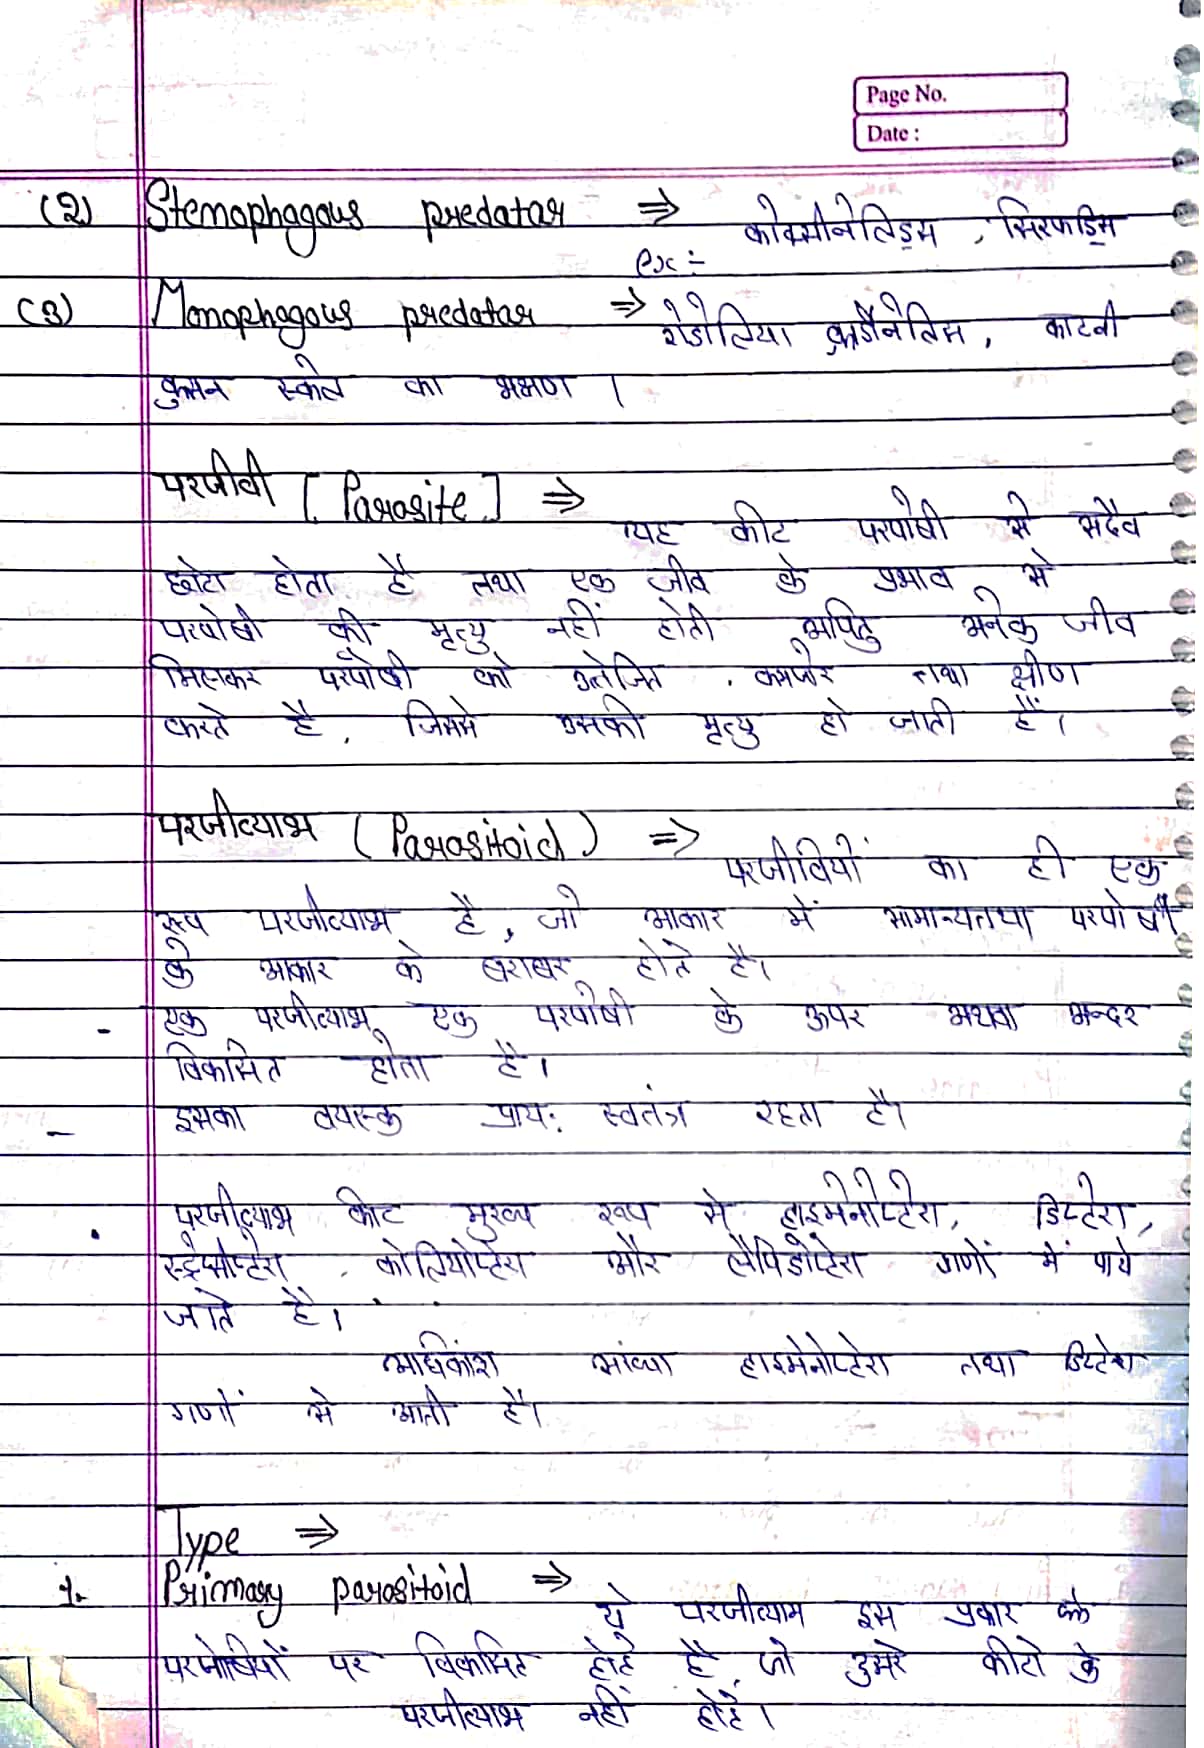 Page No.
Date :
(2) Stenophagous predator ⇒ कोक्सीनेलिड्स, सिरफड्सि
ex :-
(3) Monophagous predator ⇒ रोडोलिया कार्डीनेलिस, काटनी
कुसन स्केल का भक्षण ।
परजीवी [Parasite] ⇒
यह कीट परपोषी से सदैव
छोटा होता है तथा एक जीव के प्रभाव से
परपोषी की मृत्यु नहीं होती अपितु अनेक जीव
मिलकर परपोषी को उत्तेजित, कमजोर तथा क्षीण
करते है, जिससे उसकी मृत्यु हो जाती हैं।
परजीव्याभ (Parasitoid) ⇒
परजीवियों का ही एक
रूप परजीव्याभ है, जो आकार में सामान्यतया परपोषी
के आकार के बराबर होते है।
- एक परजीव्याभ एक परपोषी के ऊपर अथवा अन्दर
विकसित होता है।
- इसका वयस्क प्राय: स्वतंत्र रहता है।
. परजीव्याभ कीट मुख्य रूप से हाइमेनोप्टेरा, डिप्टेरा,
स्ट्रेप्सीप्टेरा, कोलियोप्टेरा और लैपिडोप्टेरा गणों में पाये
जाते है।
अधिकांश संख्या हाइमेनोप्टेरा तथा डिप्टेरा
गणों से आती है।
Type ⇒
1. Primary parasitoid ⇒
ये परजीव्याभ इस प्रकार के
परपोषियों पर विकसित होते है, जो दुसरे कीटो के
परजीव्याभ नहीं होते।